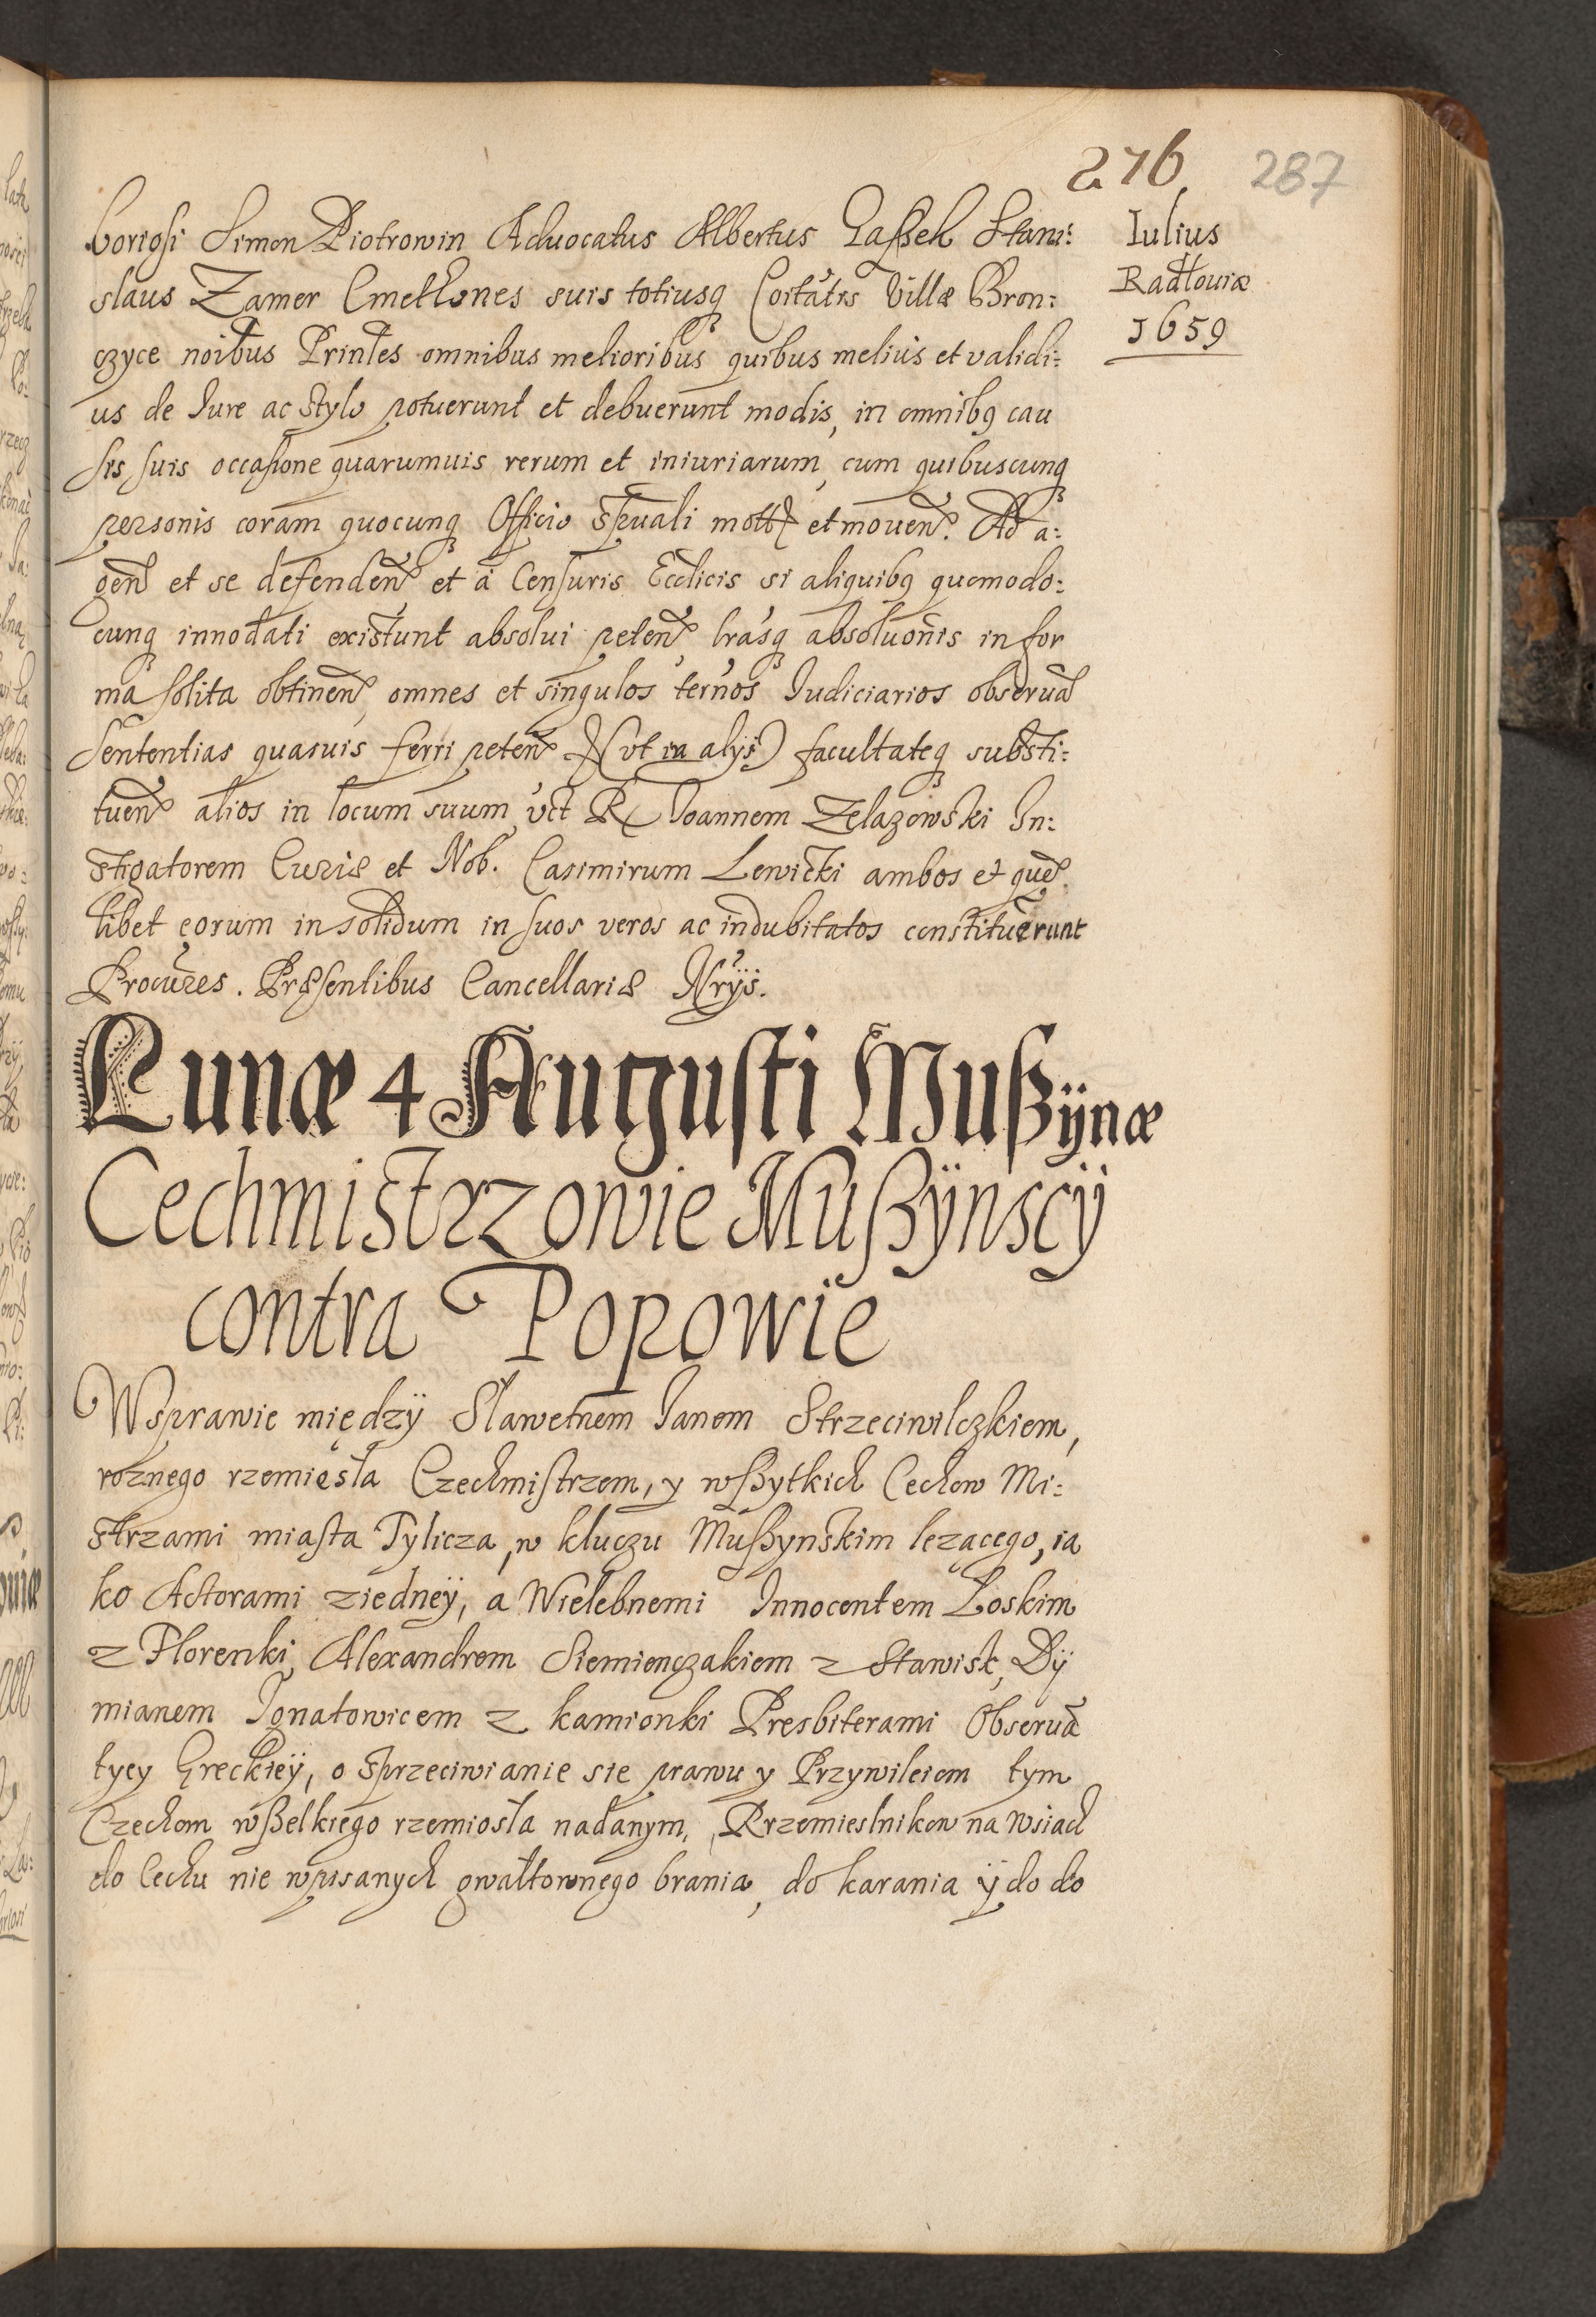 276 287
Iulius
Radłouiæ
1659
boriosi Simon Piotrowin Aduocatus Albertus Gaſsek Stani:
slaus Zamer Cmethones suis totiusq Coitatis Villæ Bron:
czyce noibus Printes omnibus melioribus quibus melius et validi:
us de Iure ac stylo potuerunt et debuerunt modis, in omnibq cau
sis suis occasione quarumuis rerum et iniuriarum, cum quibuscunq
personis coram quocunq Officio Spuali mott et mouen. Ad a:
gen et se defenden et à Censuris Ecclicis si aliquibq quomodo:
cunq innodati existunt absolui peten, lrasq absoluonis in for
ma solita obtinen, omnes et singulos ternos Iudiciarios obserua
Sententias quasuis ferri peten (vt in alys) facultateq substi:
tuen alios in locum suum vct R Ioannem Zelazowski In:
stigatorem Curiæ et Nob. Casimirum Lewicki ambos et que
libet eorum in solidum in suos veros ac indubitatos constituerunt
Procures. Præsentibus Cancellariæ Nrÿs.
Lunæ 4 Augusti Mußÿnæ
Cechmistrzowie Mußÿnscÿ
contra Popowie
Wsprawie międzÿ Sławetnem Janem Strzeciwilczkiem,
roznego rzemięsła Czechmistrzem, y wßytkich Cechow Mi:
strzami miasta Tylicza, w kluczu Mußynskim lezącego, ia
ko Actorami ziednëÿ, a Wielebnemi Innocentem Łoskim
z Florenki, Alexandrem Siemienczakiem z Stawisk, Dÿ
mianem Ignatowicem z kamionki Presbiterami Obserua
tycy Greckieÿ, o sprzeciwianie sie prawu y Przywileiom tym
Czechom wßelkiego rzemiosła nadanym, Rzemieslnikow na wsiach
do Cechu nie wpisanych gwałtownego brania, do karania ÿ do do